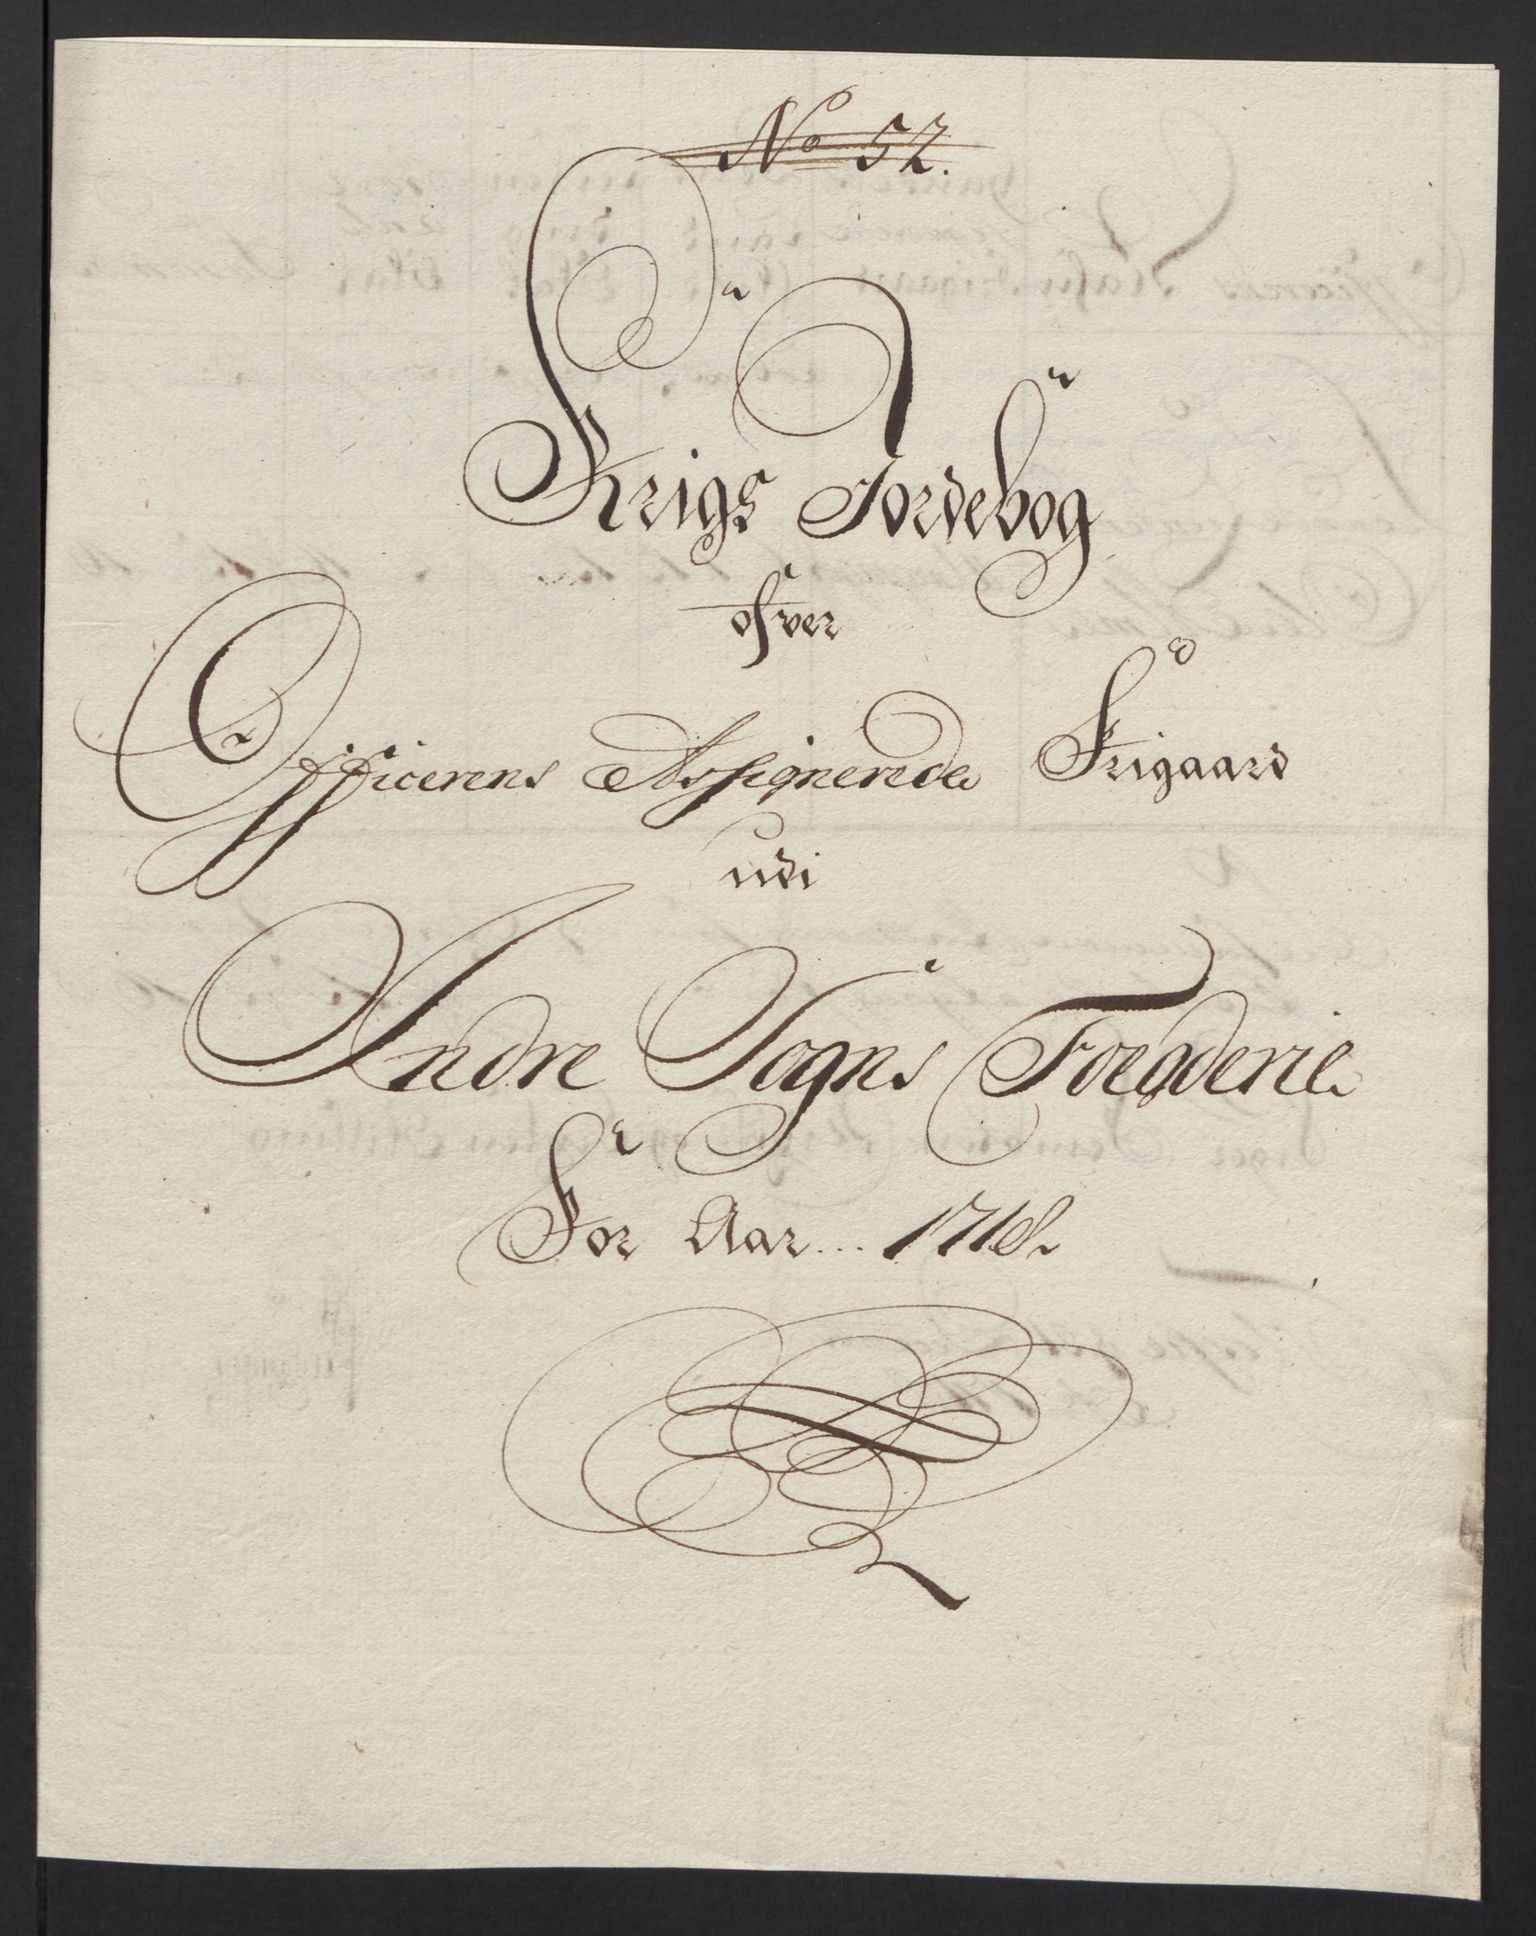 No 52.
Krigs Jordebog
ofver
Officerens Assignerede Frigaard
udi
Andre Sogns Foegderie
For Aar... 1718.